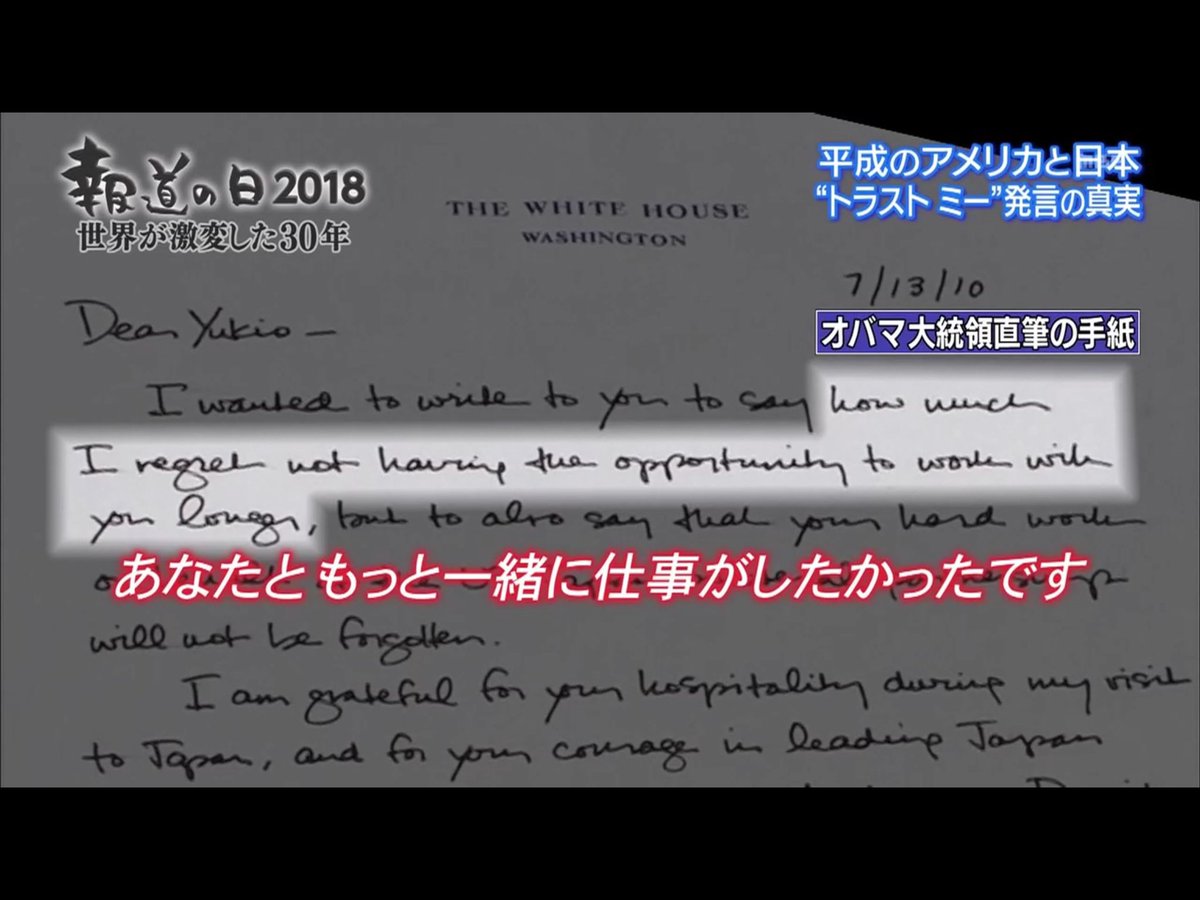 報道の日2018
世界が激変した30年
平成のアメリカと日本
“トラスト ミー”発言の真実
THE WHITE HOUSE
WASHINGTON
7/13/10
オバマ大統領直筆の手紙
Dear Yukio —
I wanted to write to you to say how much
I regret not having the opportunity to work with
you longer, but to also say that your hard work
あなたともっと一緒に仕事がしたかったです
will not be forgotten.
I am grateful for your hospitality during my visit
to Japan, and for your courage in leading Japan